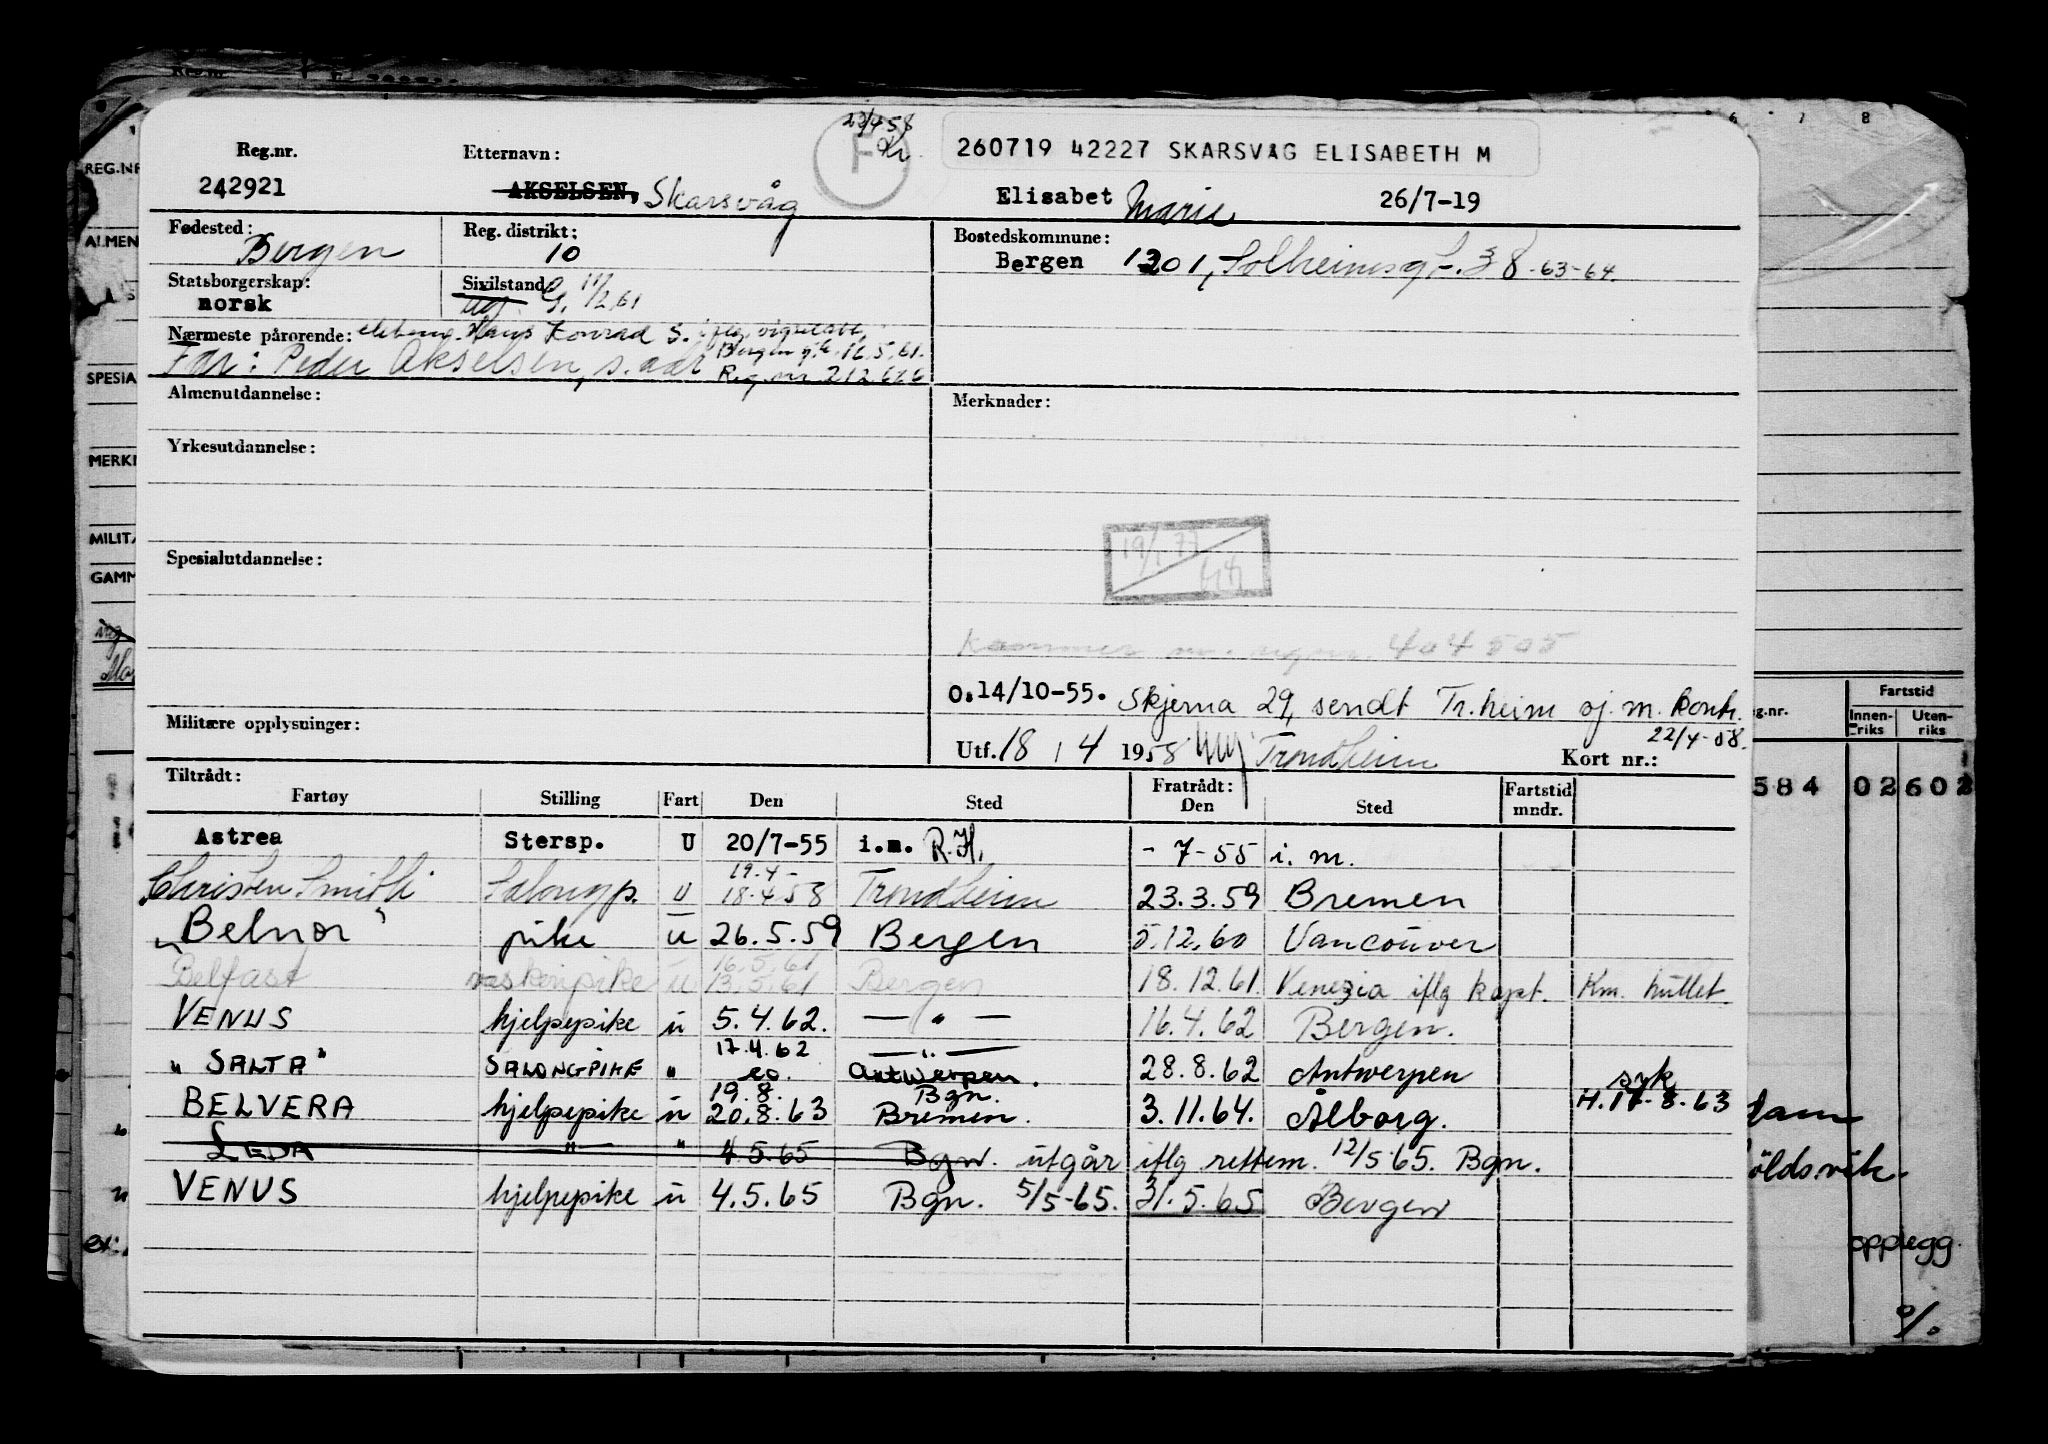 22/4 58
260719 42227 SKARSVÅG ELISABETH M
Reg.nr. Etternavn:
242921 AKSELSEN, Skarsvåg Elisabet Marie 26/7-19
Fødested: Bergen Reg. distrikt: 10 Bostedskommune:
Bergen 1301, Solheimsgt. 38 -63-64.
Statsborgerskap: norsk Sivilstand: Ug. G. 11/2 61
Nærmeste pårørende: ektem. Hans Konrad S. iflg. vigselatt.
Bergen 16.5.61.
Far: Peder Akselsen, s. adr Reg. nr 212.686
Almenutdannelse: Merknader:
Yrkesutdannelse:
19/1 77
Spesialutdannelse:
404505
O.14/10-55. Skjema 29, sendt Tr.heim sj. m. kontr.
22/4-58.
Militære opplysninger:
Utf. 18 / 4 1958 Trondheim Kort nr.:
Tiltrådt: Fratrådt:
Fartøy Stilling Fart Den Sted Den Sted Fartstid mndr.
Astrea Stersp. U 20/7-55 i.m. R.H. - 7-55 i. m.
19.4-
Christen Smith Salongp. U 18.4 58 Trondheim 23.3.59 Bremen
"Belnor" pike u 26.5.59 Bergen 5.12.60 Vancouver
16.5.61
Belfast vaskeripike u 13.5.61 Bergen 18.12.61 Venezia iflg kapt. Km. hullet.
VENUS hjelpepike u 5.4.62. — " — 16.4.62 Bergen.
17.4.62 — " —
"SALTA" SALONGPIKE " 20. Antwerpen. 28.8.62 Antwerpen syk
19.8. Bgn. H.17-8-63
BELVERA hjelpepike u 20.8.63 Bremen. 3.11.64. Ålborg.
LEDA — " — " 4.5.65 Bgn. utgår iflg rettem. 12/5 65. Bgn.
VENUS hjelpepike u 4.5.65 Bgn. 5/5-65. 31.5.65 Bergen
REG.NR
ALMEN
SPESIA
MERK
MILITÆ
GAMM
6 7 8
Fartstid
g.nr. Innen-riks Uten-riks
584 02 602
dam
öldsvik.
opplegg.
%